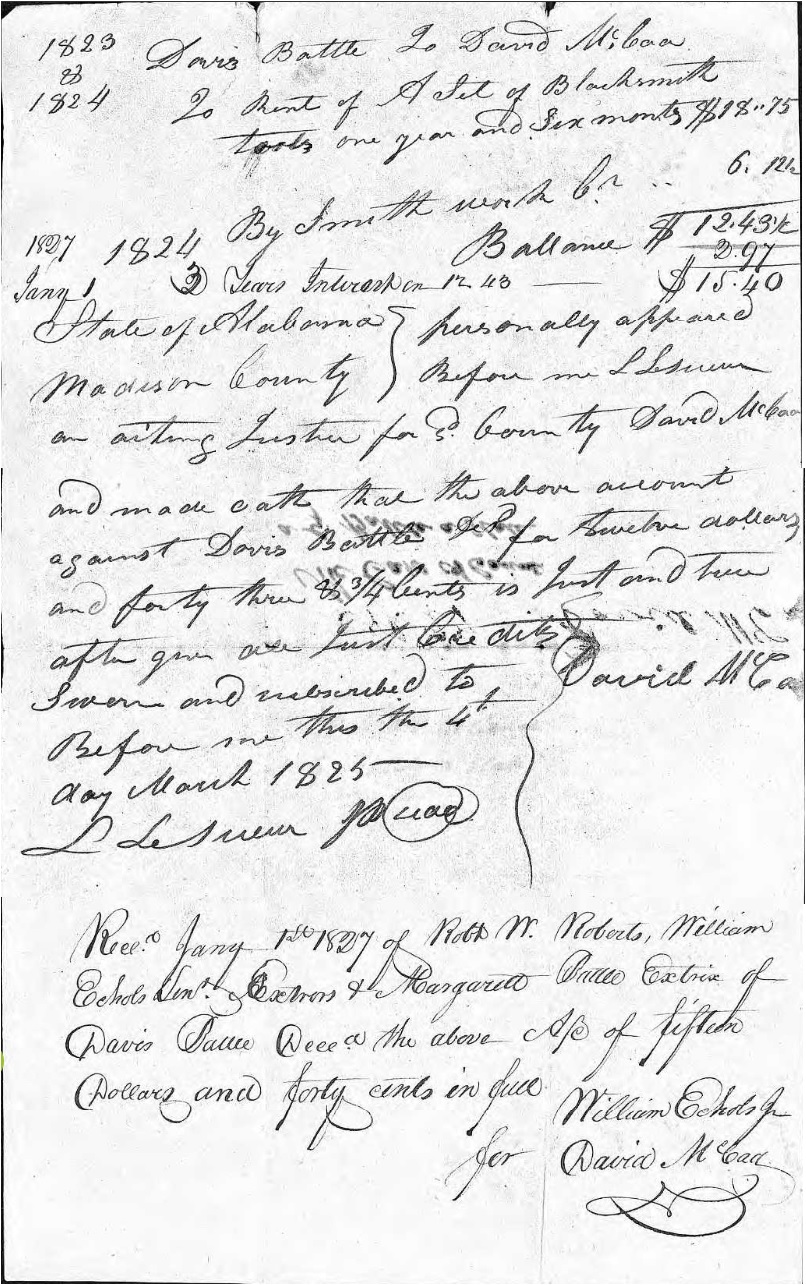 1823 Davis Battle To David McCaa
&
1824 To Rent of A Set of Blacksmith
tools one year and Six months $18..75
By Smith work Cr .. 6. 12½
1827 1824 Ballance $ 12.43½
2.97
Jany 1 3 Years Interest on 12 43 — $15.40
State of Alabama } personally appeared
Madison County } Before me L Lesueur
an acting Justice for sd County David McCaa
and made oath that the above account
against Davis Battle Decd for twelve dollars
and forty three & ¾ Cents is Just and true
after given all Just Credits
Sworn and subscribed to David McCa
Before me this the 4th
day March 1825
L LeSueur JP
Recd Jany 1st 1827 of Robt W. Roberts, William
Echols Senr. Extrors & Margarett Battle Extrix of
Davis Battle Deced the above A/c of fifteen
Dollars and forty cents in full
William Echols Jr
for David McCaa